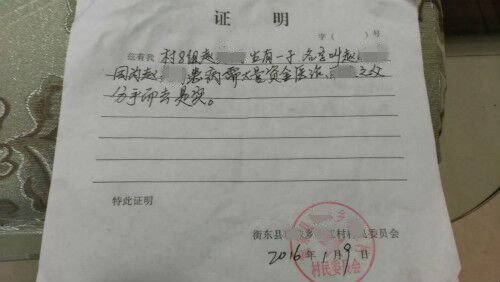 证 明
字（ ）号
兹有我 村8组赵 ，生有一子 名字叫赵
因为赵 患病需大量资金医治， 之父
分手而去是实。
特此证明
衡东县 乡 村 委员会
2016年1月9日
乡
村民委员会